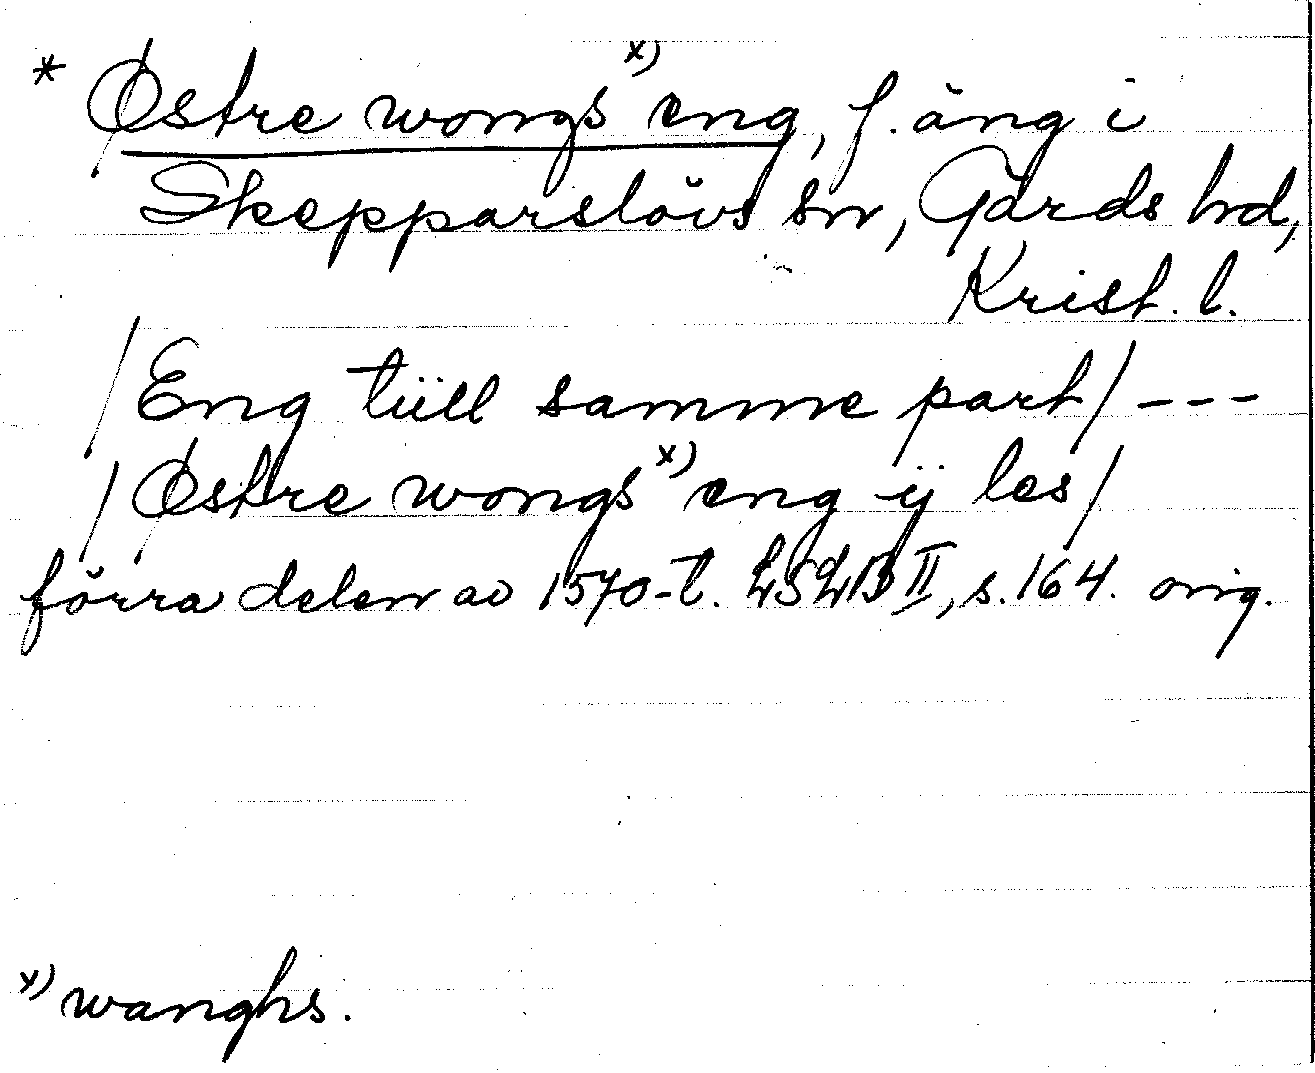 * Østre wongs x) eng, f. äng i
Skepparslövs sn, Gärds hd,
Krist. l.
/Eng tüll samme part/ ---
/Østre wongs x) eng ij les/
förra delen av 1570-t. LSLB II, s. 164. orig.
x) wanghs.